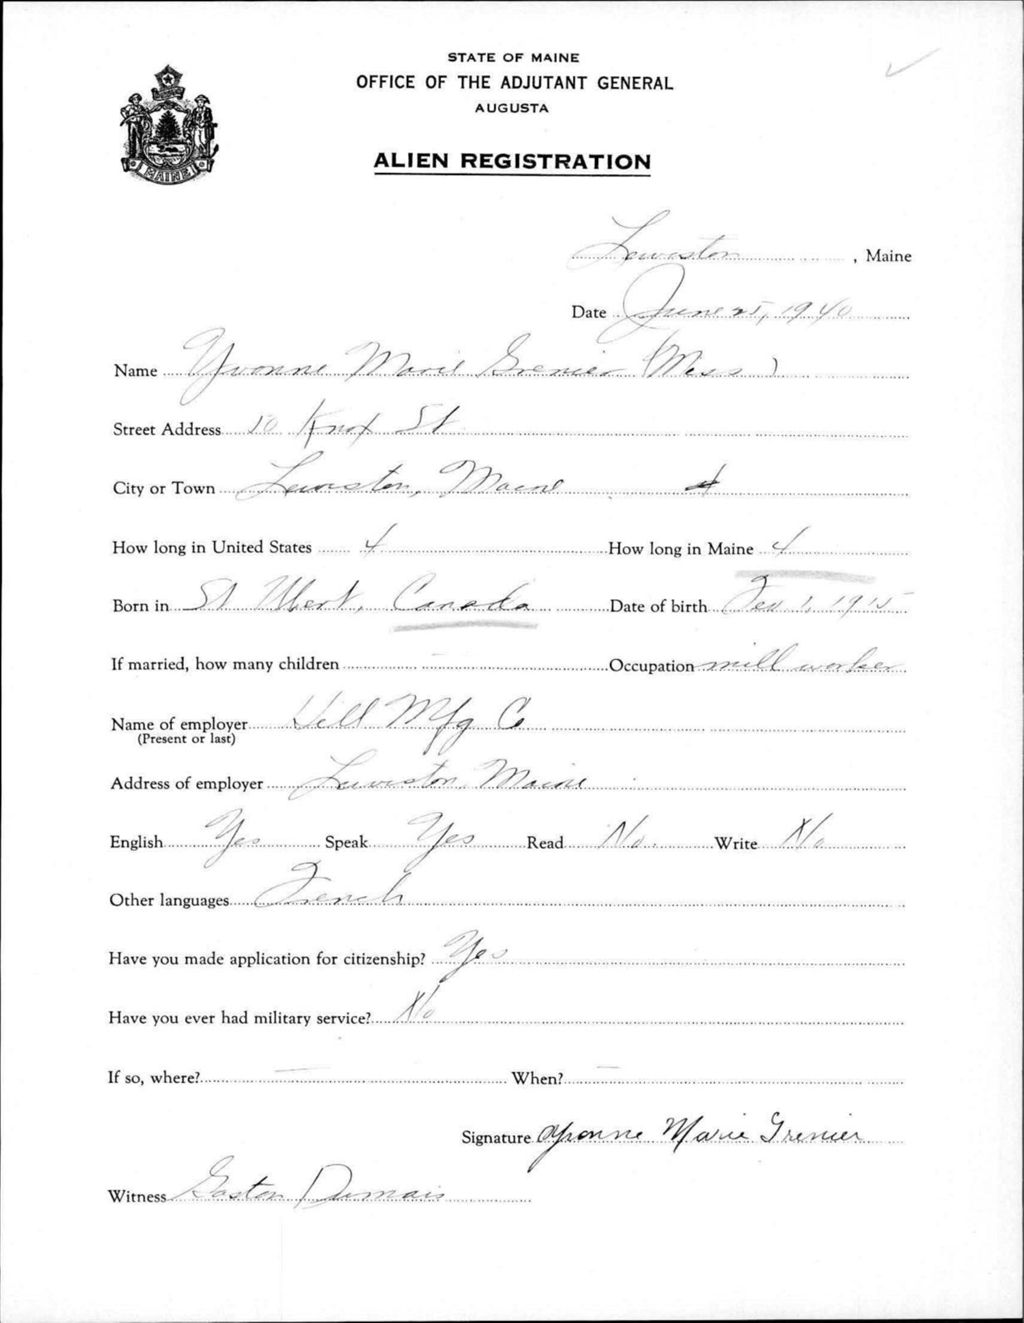 STATE OF MAINE
OFFICE OF THE ADJUTANT GENERAL
AUGUSTA
MAINE
ALIEN REGISTRATION
Lewiston, Maine
Date June 25, 1940
Name Yvonne Marie Grenier (Miss)
Street Address 50 Knox St
City or Town Lewiston, Maine
How long in United States 4 How long in Maine 4
Born in St Albert, Canada Date of birth Feb 1, 1915
If married, how many children — Occupation mill worker
Name of employer Hill Mfg Co
(Present or last)
Address of employer Lewiston, Maine
English Yes Speak Yes Read No Write No
Other languages French
Have you made application for citizenship? Yes
Have you ever had military service? No
If so, where? — When? —
Signature Yvonne Marie Grenier
Witness Gaston Dumais